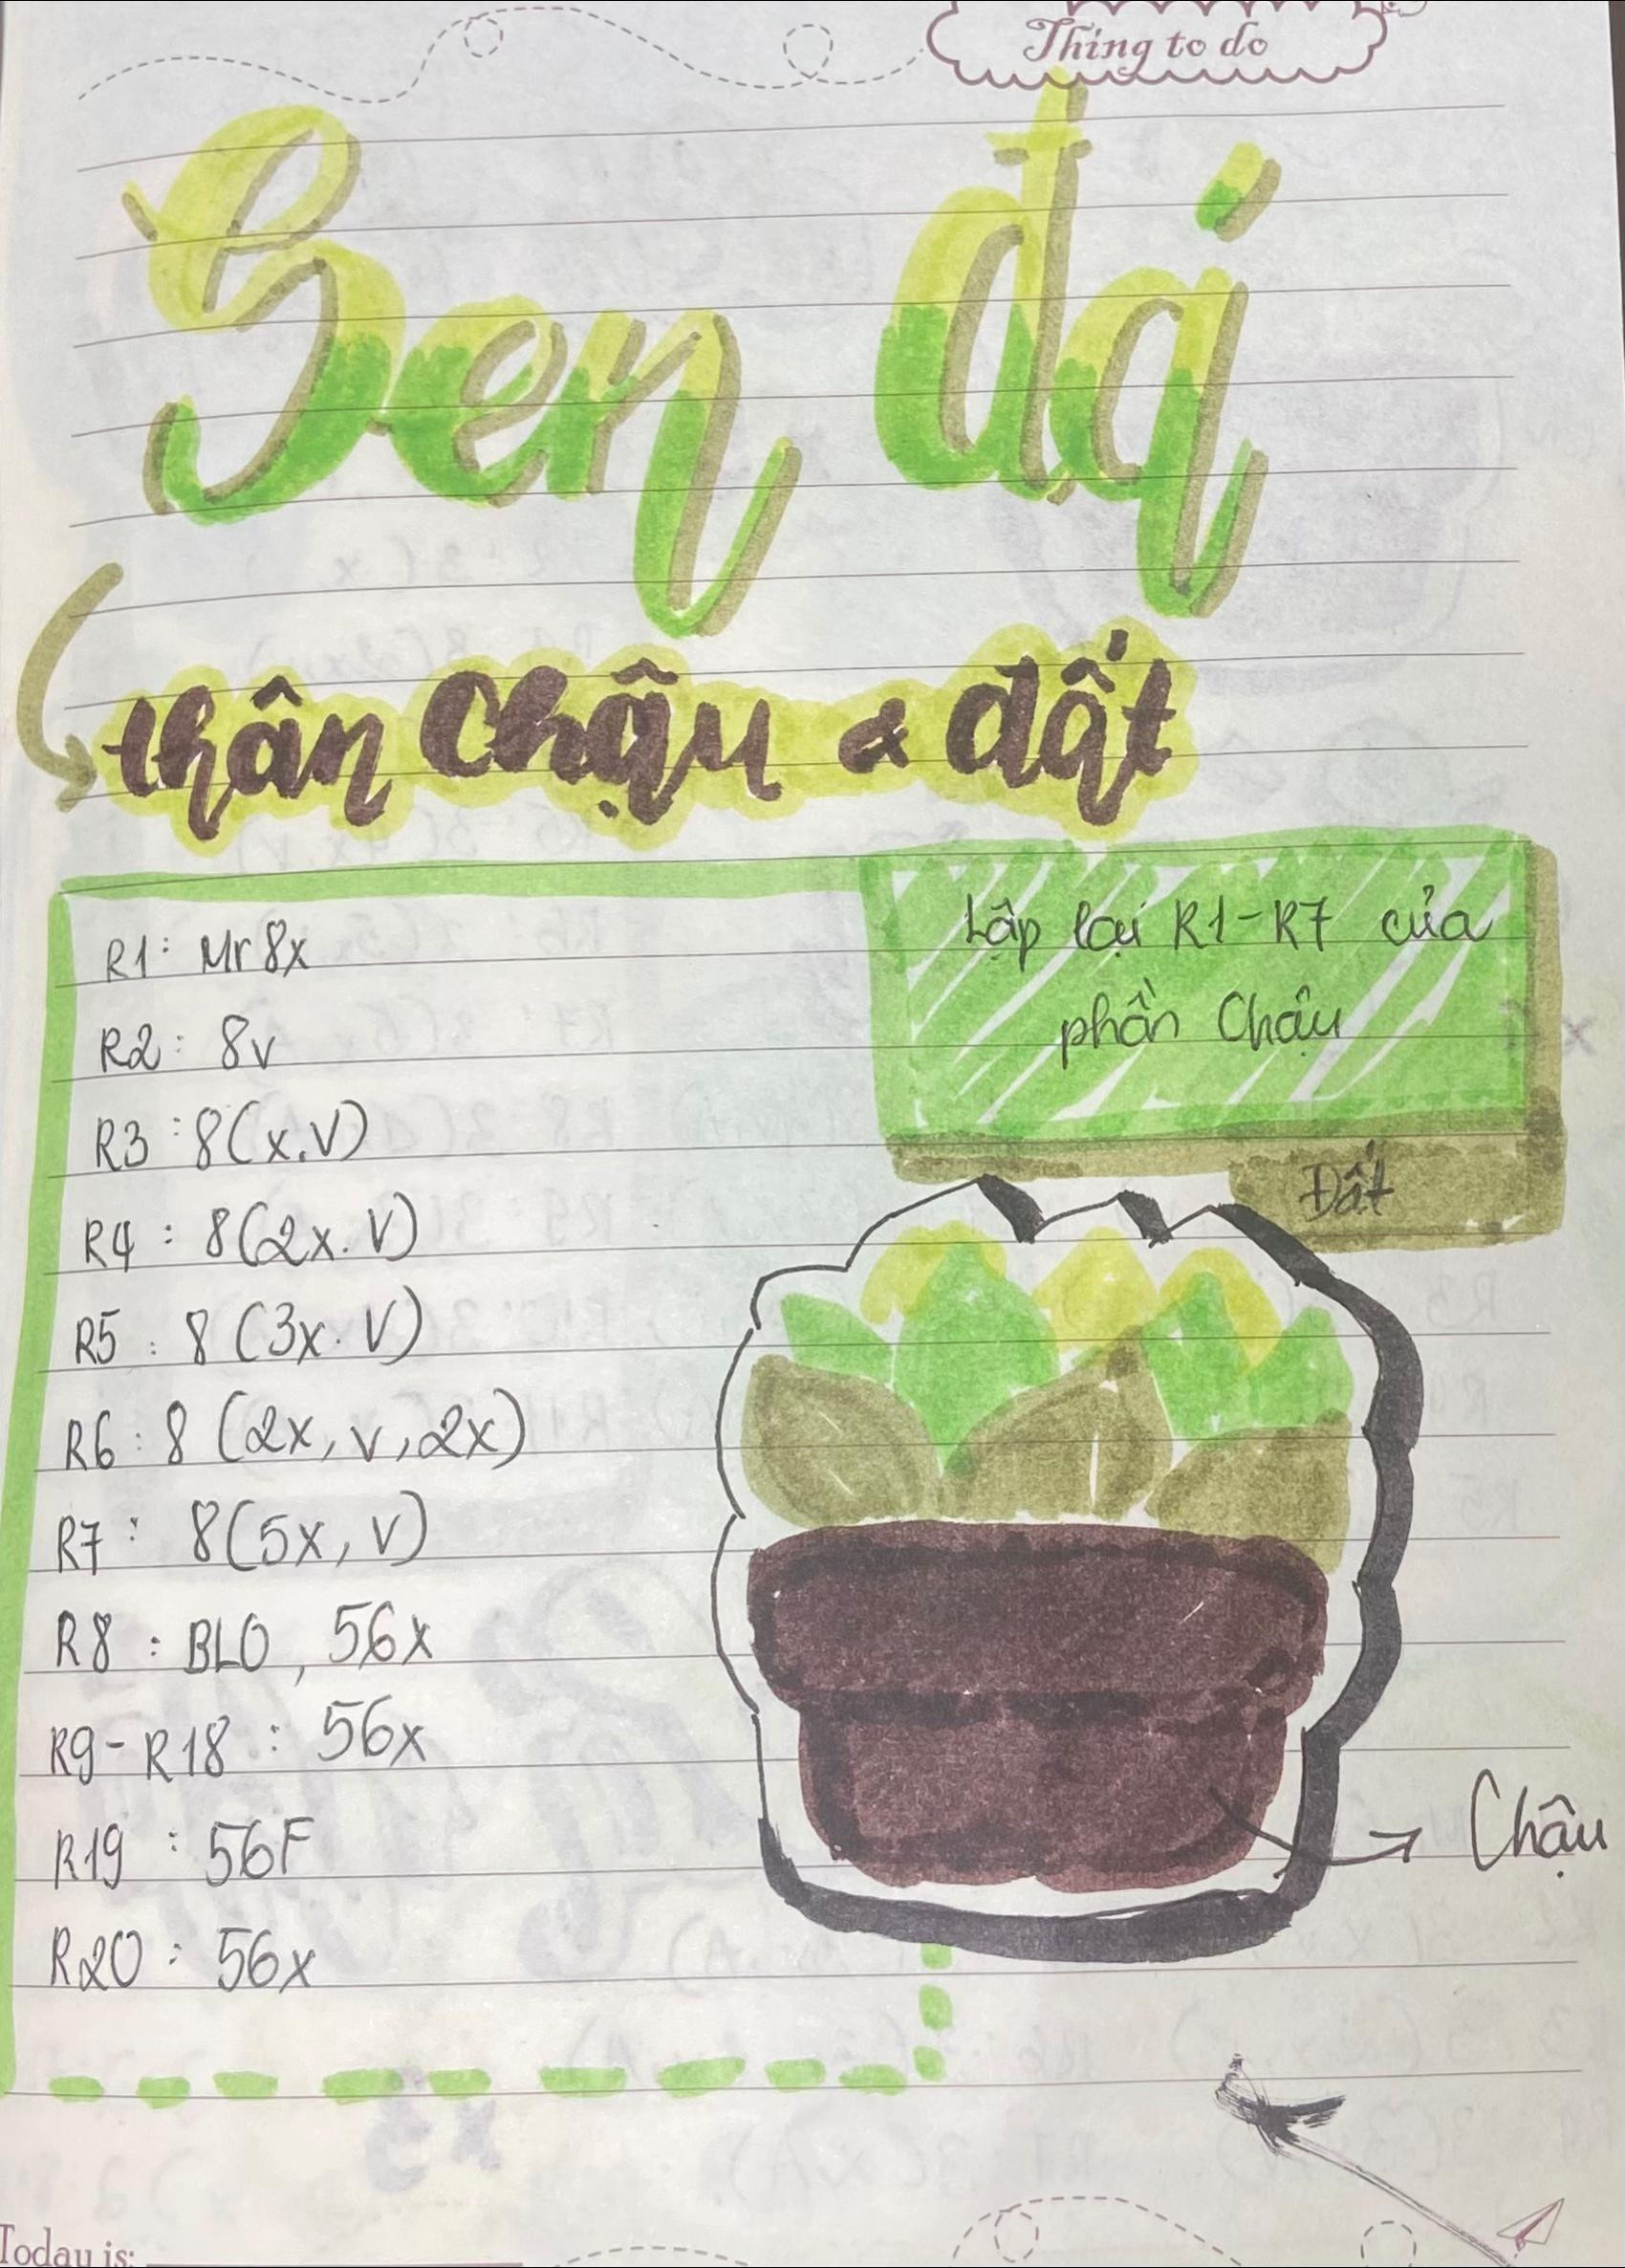 Thing to do
Sen đá
thân chậu & đất
R1: Mr 8x
R2: 8v
R3: 8(x.V)
R4: 8(2x.V)
R5: 8(3x.V)
R6: 8(2x, v, 2x)
R7: 8(5x, V)
R8: BLO, 56x
R9-R18: 56x
R19: 56F
R20: 56x
Lặp lại R1-R7 của
phần Chậu
Đất
Chậu
Today is: